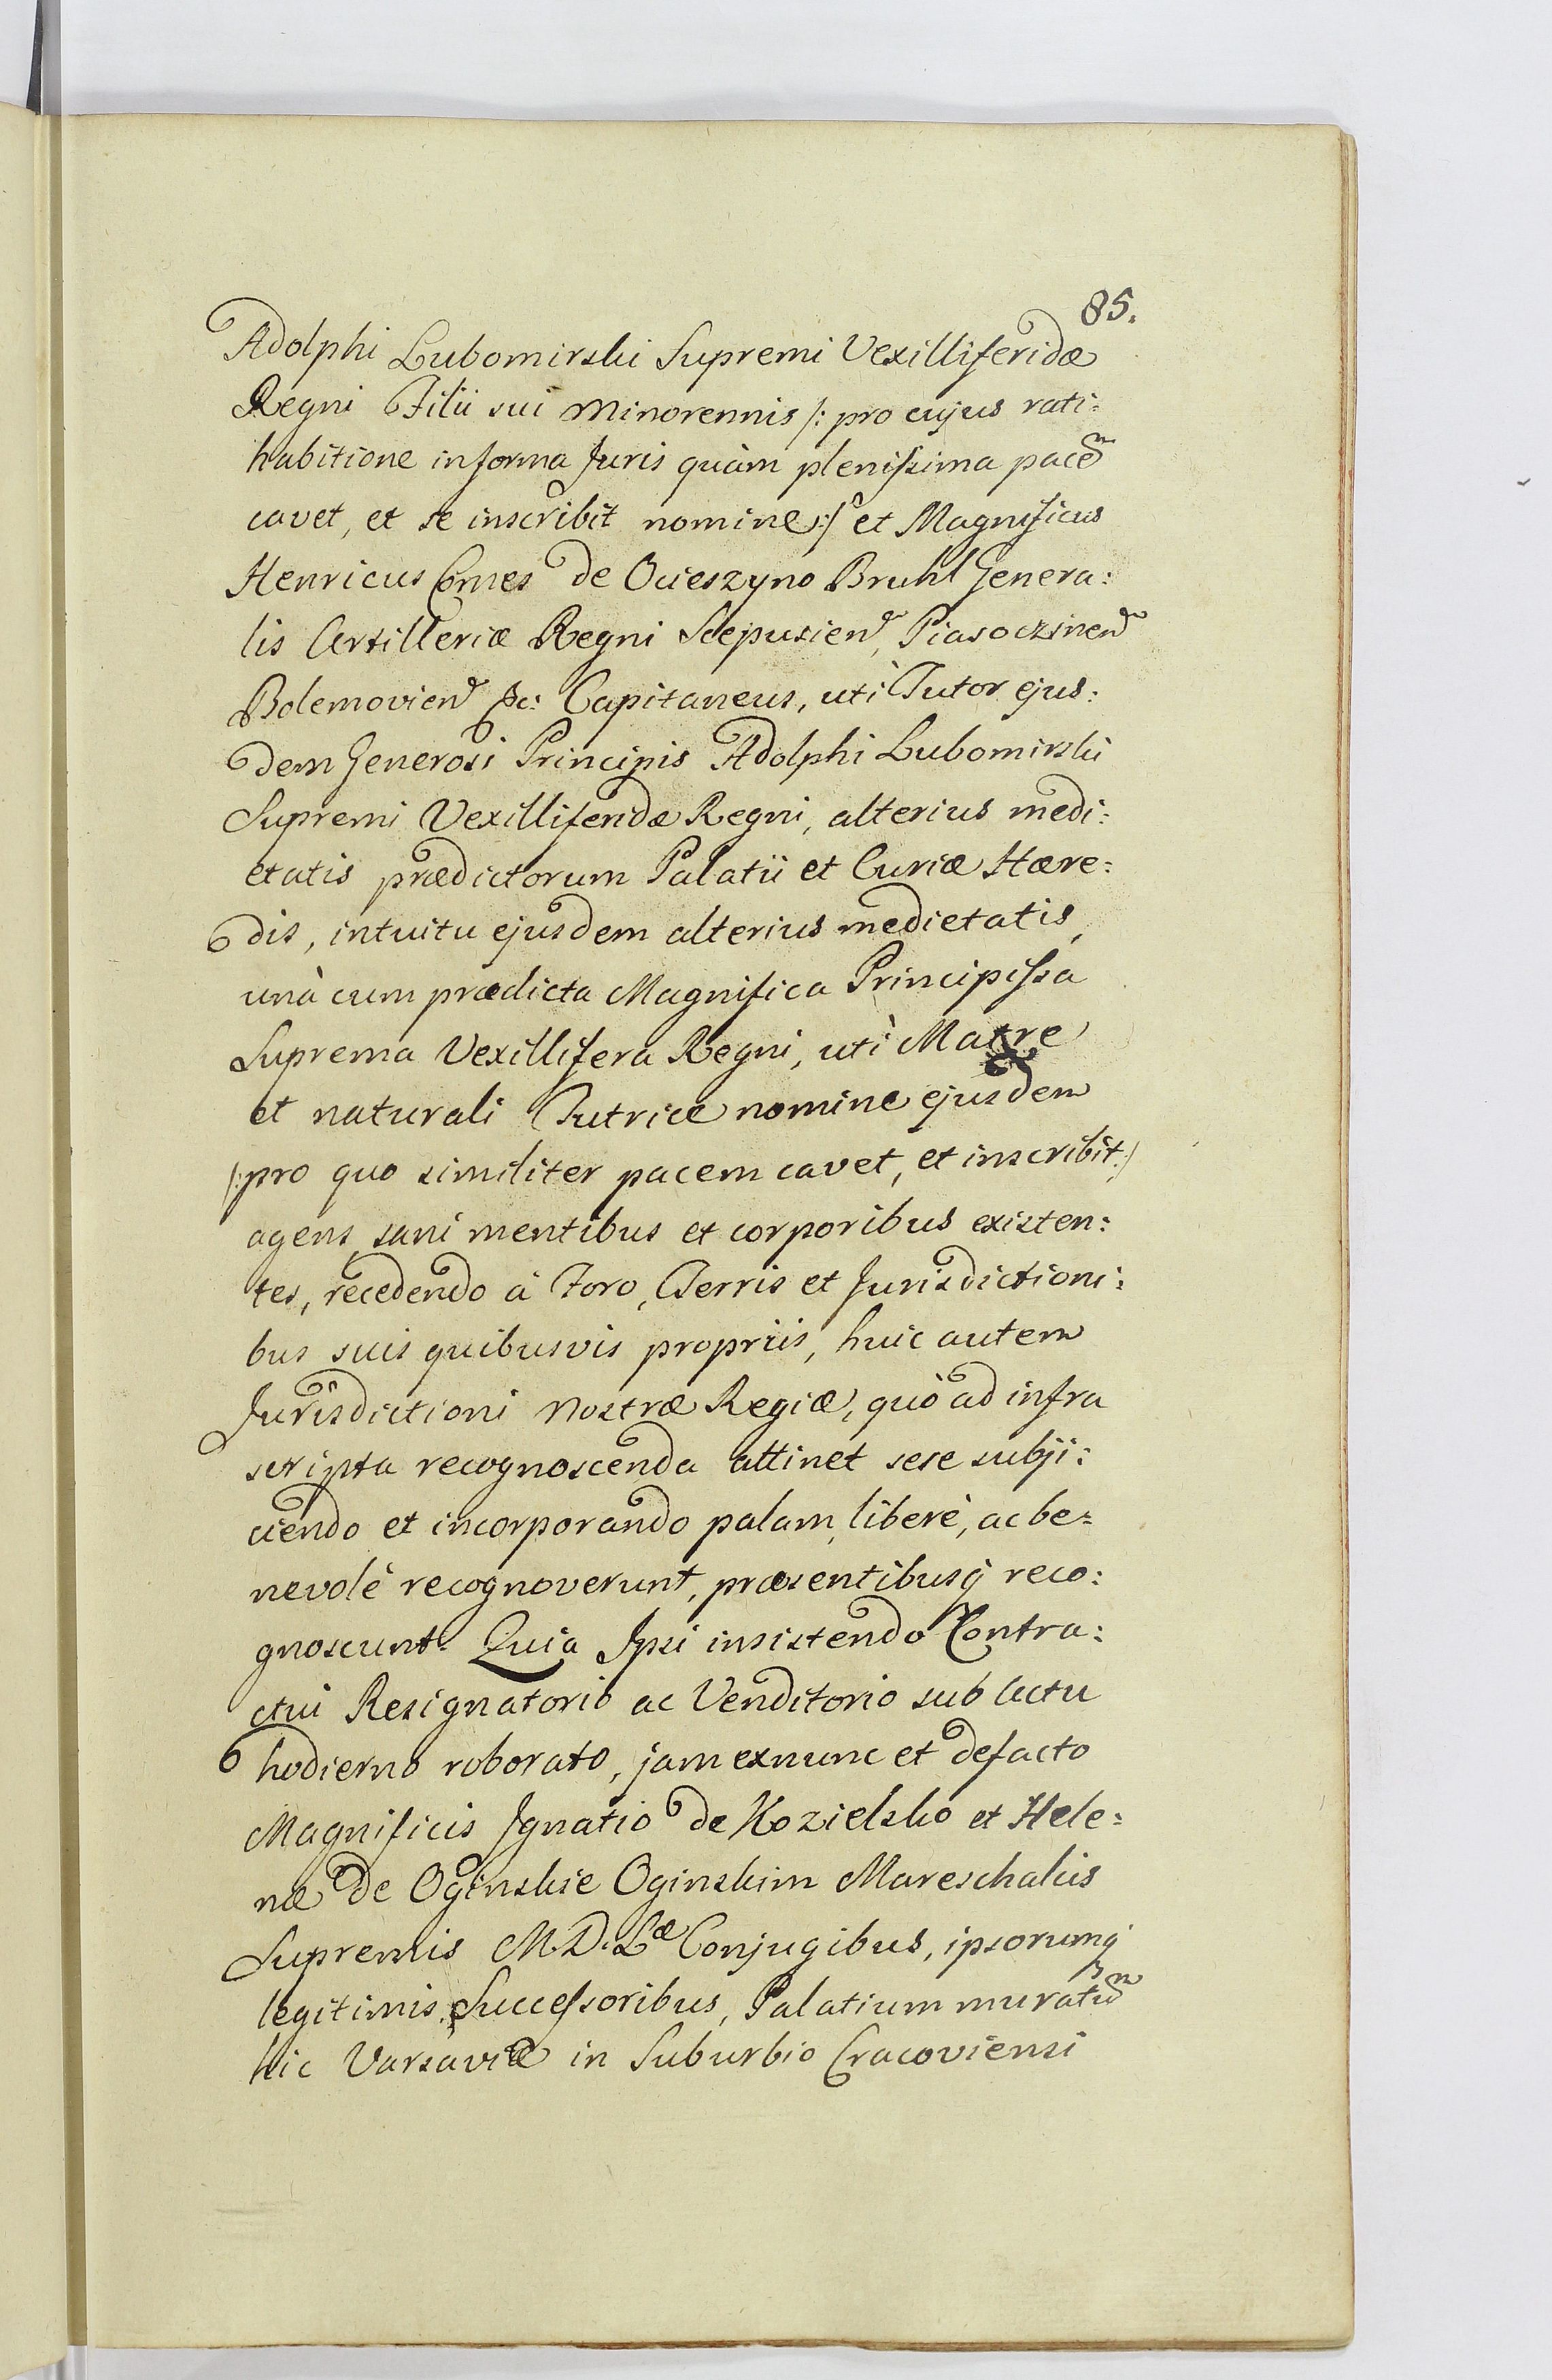 85.
Adolphi Lubomirski Supremi Vexilliferidæ
Regni Filii sui Minorennis /: pro cujus rati:
habitione in forma Juris quàm plenissima pacem
cavet, et se inscribit nomine :/ et Magnificus
Henricus Comes de Ocieszyno Bruhl Genera:
lis Artilleriæ Regni Scepusien, Piasoczinen
Bolemovien &c: Capitaneus, uti Tutor ejus:
dem Generosi Principis Adolphi Lubomirski
Supremi Vexilliferidæ Regni, alterius medi:
etatis prædictorum Palatii et Curiæ Hære:
dis, intuitu ejusdem alterius medietatis,
unà cum prædicta Magnifica Principissa
Suprema Vexillifera Regni, uti Matre
et naturali Tutrice nomine ejusdem
/:pro quo similiter pacem cavet, et inscribit:/
agens sani mentibus et corporibus existen:
tes, recedendo à Foro, Terris et Jurisdictioni:
bus suis quibusvis propriis, huic autem
Jurisdictioni Nostræ Regiæ, quò ad infra
scripta recognoscenda attinet sese subji:
ciendo et incorporando palam, liberè, ac be=
nevolè recognoverunt, præsentibusq reco:
gnoscunt. Quia Ipsi insistendo Contra:
ctui Resignatorio ac Venditorio sub Actu
hodierno roborato, jam exnunc et defacto
Magnificis Ignatio de Kozielsko et Hele:
næ de Oginskie Oginskim Mareschalis
Supremis M.D.Læ Conjugibus, ipsorumq
legitimis Successoribus, Palatium muratum
hic Varsaviæ in Suburbio Cracoviensi